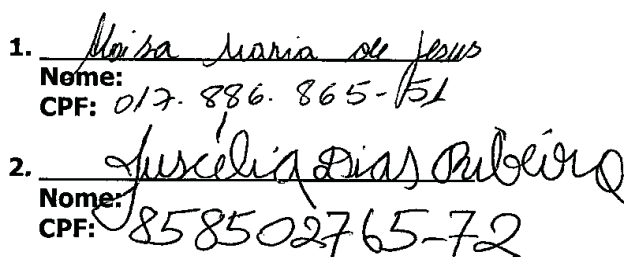 1. Moisa Maria de Jesus
Nome:
CPF: 017.886.865-51
2. Juscélia Dias Ribeiro
Nome:
CPF: 858502765-72